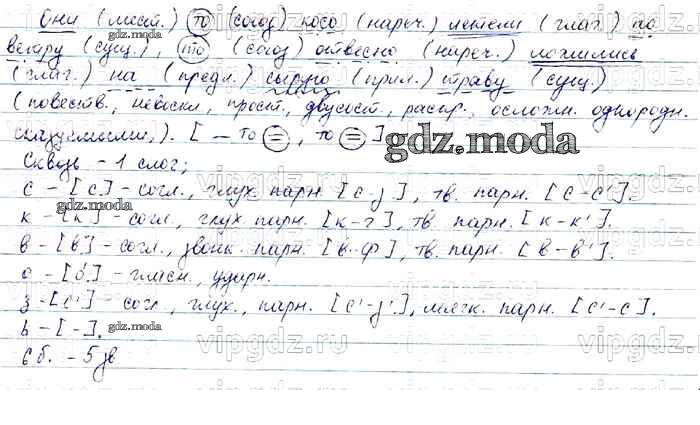 Они (мест.) то (союз) косо (нареч.) летели (глаг.) по
ветру (сущ.), то (союз) отвесно (нареч.) ложились
(глаг.) на (предл.) сырую (прил.) траву (сущ.)
(повеств., невоскл., прост., двусост., распр., осложн. однородн.
сказуемыми,). [ – то ⊜, то ⊜ ]
gdz.moda
Сквозь – 1 слог;
с – [с] – согл., глух. парн. [с-з], тв. парн. [с-с'].
gdz.moda
к – [к] – согл., глух. парн. [к-г], тв. парн. [к-к'].
в – [в] – согл., звонк. парн. [в-ф], тв. парн. [в-в'].
о – [о́] – гласн., ударн.
з – [с'] – согл., глух., парн. [с'-з'], мягк. парн. [с'-с].
ь – [-].
gdz.moda
6б. – 5зв
vipgdz.ru